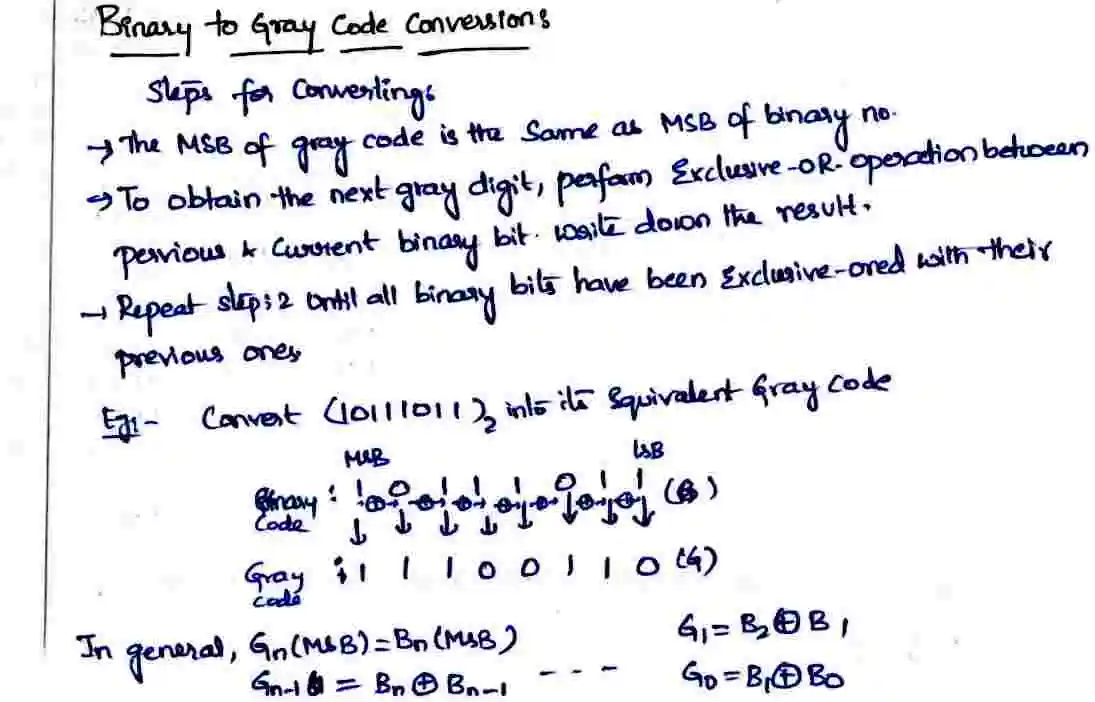 Binary to Gray Code Conversions
Steps for Converting:
→ The MSB of gray code is the Same as MSB of binary no.
→ To obtain the next gray digit, perfom Exclusive-OR-operation between
pervious & Current binary bit. write down the result.
→ Repeat step:2 until all binary bits have been Exclusive-ored with their
previous ones
Eg1- Convert (10111011)₂ into its Equivalent Gray code
MSB LSB
Binary Code : 1 ⊕ 0 ⊕ 1 ⊕ 1 ⊕ 1 ⊕ 0 ⊕ 1 ⊕ 1 (B)
↓ ↓ ↓ ↓ ↓ ↓ ↓ ↓
Gray code : 1 1 1 0 0 1 1 0 (G)
In general, Gn(MSB) = Bn(MSB) G₁ = B₂ ⊕ B₁
Gn-1 = Bn ⊕ Bn-1 - - - G₀ = B₁ ⊕ B₀